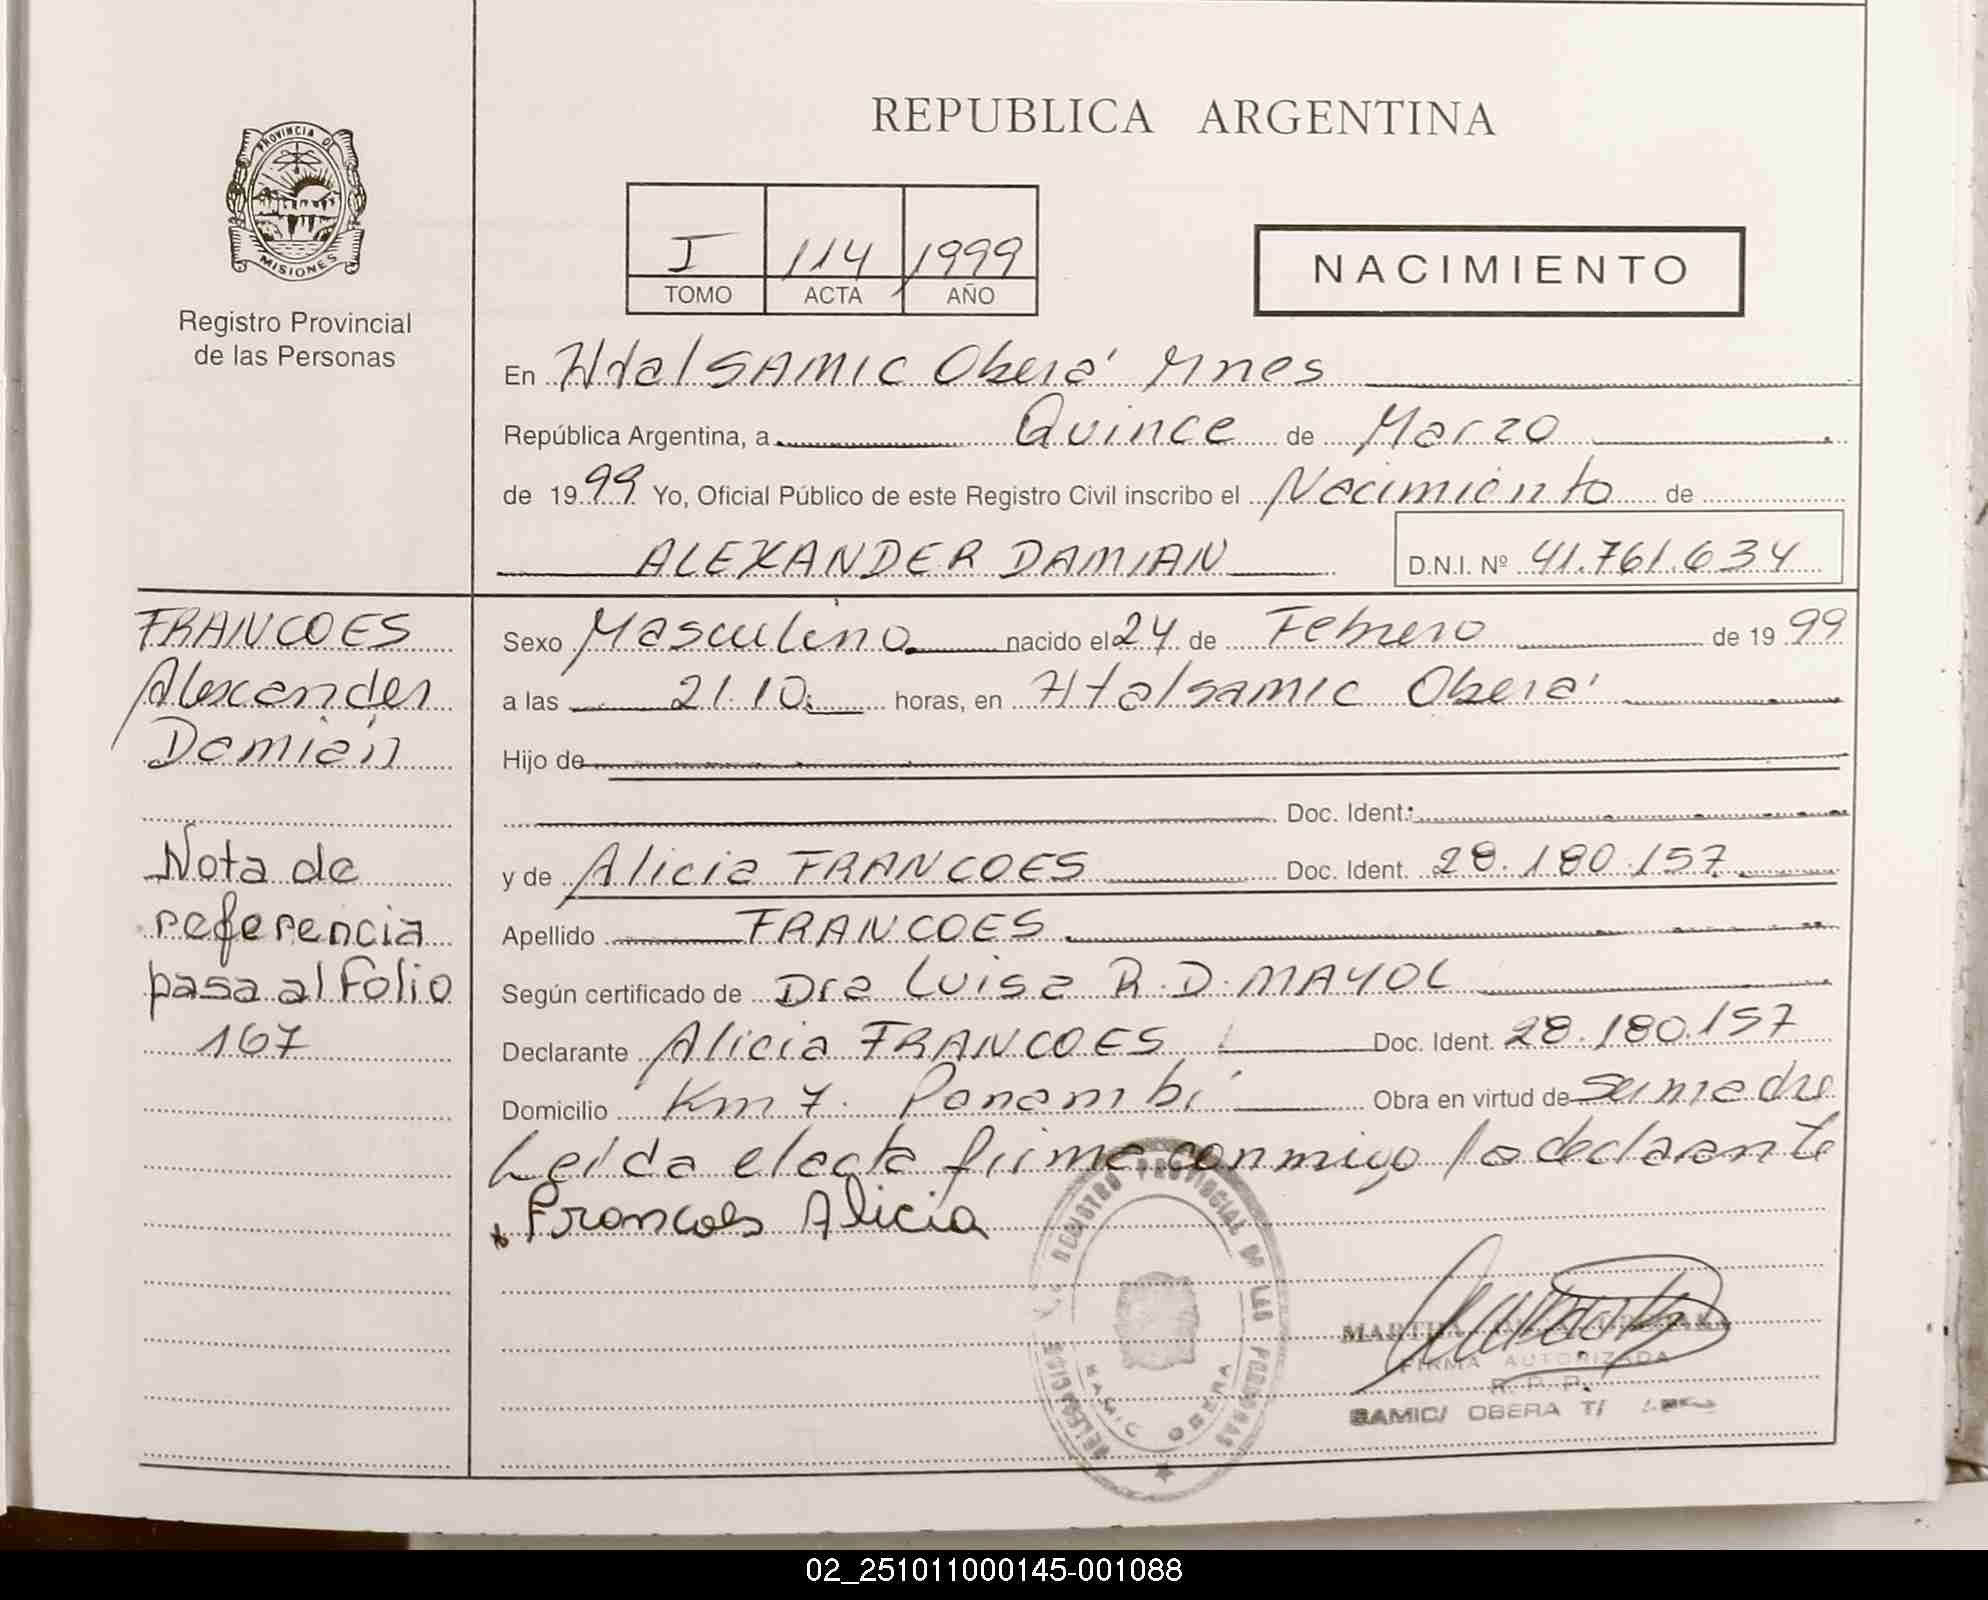 PROVINCIA DE
MISIONES
Registro Provincial
de las Personas
REPUBLICA ARGENTINA
I 114 1999
TOMO ACTA AÑO
NACIMIENTO
En Htal SAMIC Oberá Mnes
República Argentina, a Quince de Marzo
de 1999 Yo, Oficial Público de este Registro Civil inscribo el Nacimiento de
ALEXANDER DAMIAN D.N.I. Nº 41.761.634
FRANCOES
Alexander
Damián
Nota de
referencia
pasa al Folio
167
Sexo Masculino nacido el 24 de Febrero de 1999
a las 21.10 horas, en Htal samic Oberá
Hijo de
Doc. Ident.
y de Alicia FRANCOES Doc. Ident. 28.180.157
Apellido FRANCOES
Según certificado de Dra Luisa R.D. MAYOL
Declarante Alicia FRANCOES Doc. Ident. 28.180.157
Domicilio Km 7. Panambí Obra en virtud de su madre
Leída el acta firma conmigo la declarante
Francoes Alicia
REGISTRO PROVINCIAL DE LAS PERSONAS
SAMIC OBERA
MARTHA
FIRMA AUTORIZADA
R. P. P.
SAMIC/ OBERA T/
02_251011000145-001088